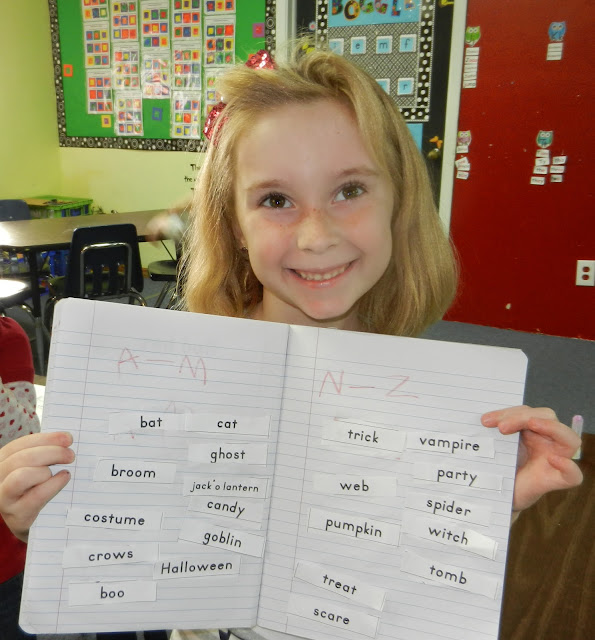 BOGGLE
e m f
A — M
bat cat
ghost
broom
jack'o lantern
candy
costume
goblin
crows
Halloween
boo
N — Z
trick vampire
party
web
spider
pumpkin
witch
tomb
treat
scare